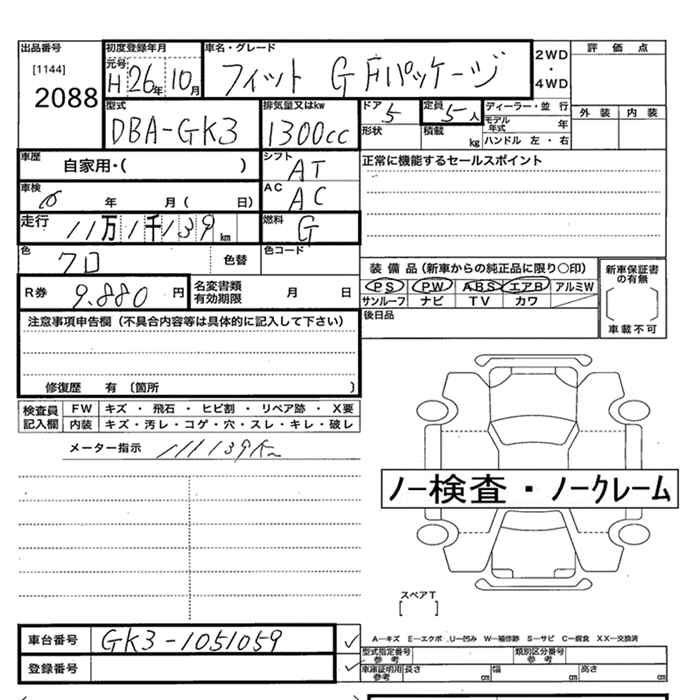 出品番号
[1144]
2088
初度登録年月
元号
H 26年 10月
車名・グレード
フィット G Fパッケージ
2WD
・
4WD
評 価 点
外 装 内 装
型式
DBA-GK3
排気量又はkw
1300cc
ドア 5
形状
定員 5人
積載 kg
ディーラー・並 行
モデル年式 年
ハンドル 左 ・ 右
車歴
自家用・( )
シフト
AT
正常に機能するセールスポイント
車検
年 月 ( 日)
AC
AC
走行
11万1千139km
燃料
G
色
クロ
色替
色コード
装 備 品 (新車からの純正品に限り○印)
PS PW ABS エアB アルミW
サンルーフ ナビ TV カワ
新車保証書
の有無
車載不可
R券
9.880 円
名変書類
有効期限
月 日
後日品
注意事項申告欄 (不具合内容等は具体的に記入して下さい)
修復歴 有 〔箇所 〕
検査員
記入欄
FW キズ ・ 飛石 ・ ヒビ割 ・ リペア跡 ・ X要
内装 キズ・汚レ・コゲ・穴・スレ・キレ・破レ
メーター指示 111139K
ノー検査・ノークレーム
スペアT
[ ]
車台番号 GK3-1051059
登録番号
A―キズ E―エクボ U―凹み W―補修跡 S―サビ C―腐食 XX―交換済
型式指定番号
参 考
類別区分番号
参 考
車庫証明用
参考
長さ cm 幅 cm 高さ cm